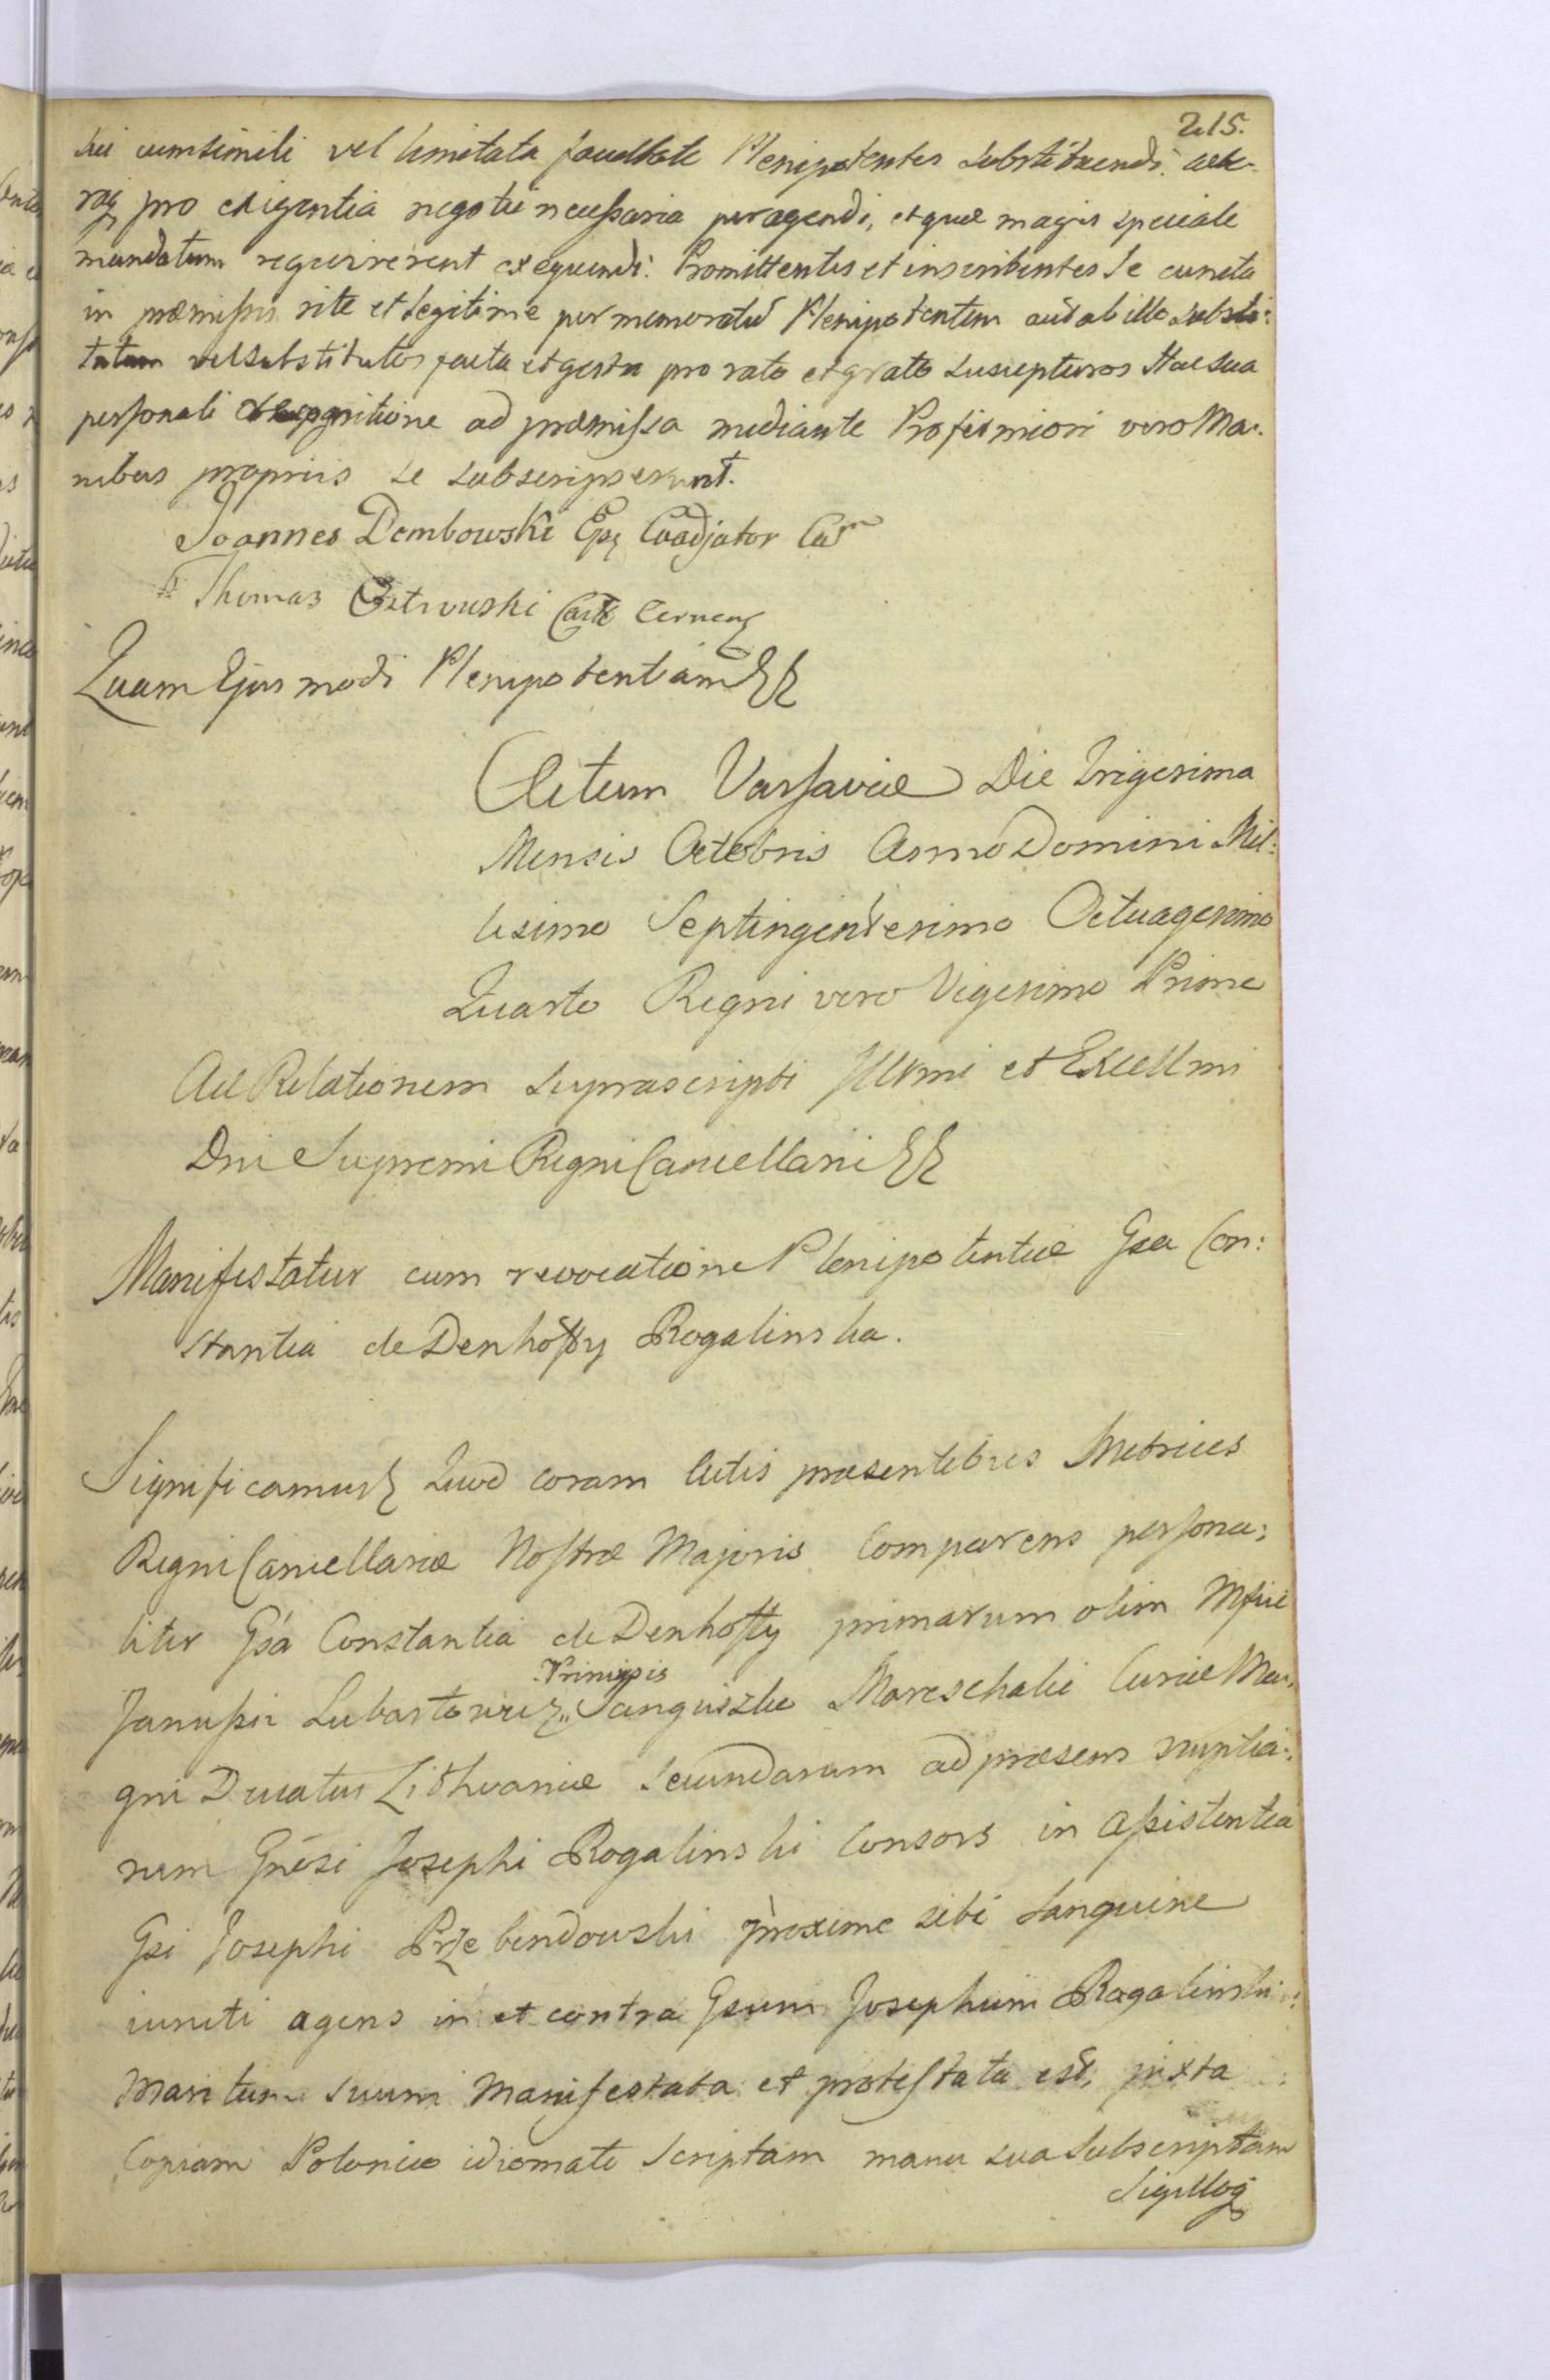 215.
sui cumsimili vel limitata facultate Plenipotentes substituendi. aete-
raq pro exigentia negotii necessaria peragendi, etquæ magis speciale
mandatum requirerent exequendi. Promittentes et inscribentes Se cuncta
in præmissis rite et legitime per memoratū Plenipotentem aut ab illo substi:
tutum vel substitutos facta et gesta pro rato et grato suscepturos Hac sua
personali recognitione ad præmissa mediante Profirmiori vero Ma:
nibus propriis se subscripserunt.
Joannes Dembowski Epq Coadjator
Thomas Ostrowski Castt Cernen
Quam Ejusmodi Plenipotentiam
Actum Varsaviæ Die Trigesima
Mensis Octobris Anno Domini Mil:
lesimo Septingentesimo Octuagesimo
Quarto Regni vero Vigesimo Primo
Ad Relationem suprascripti Illrmi et Excellmi
Dni Supremi Regni Cancellarii
Manifestatur cum revocatione Plenipotentiæ Gsa Con:
stantia de Denhoffy Rogalinska.
Significamus Quod coram Actis præsentibus Metrices
Regni Cancellariæ Nostræ Majoris Comparens persona:
liter Gsa Constantia de Denhoffy primarum olim Mfici
Janussii Lubartowicz Principis Sanguszko Mareschalii Curiæ Ma:
gni Ducatus Lithvaniæ secundarum ad præsens nuptia:
rum Gnősi Josephi Rogalinski Consors in Assistentia
Gsi Josephi Przebendowski proxime sibi sanguine
iuncti agens in et contra Gsum Josephum Rogalinski
Maritum suum Manifestata et protestata est, juxta
Copiam Polonico idiomate scriptam manu sua subscriptam
Sigilloq